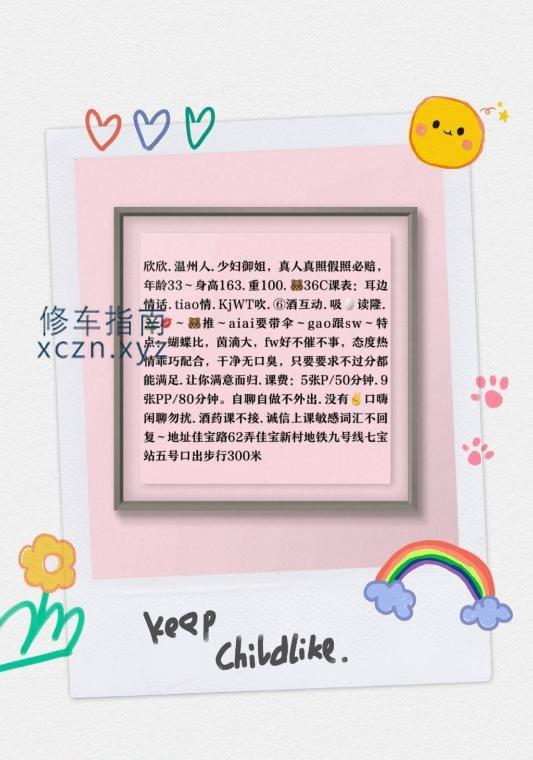 欣欣.温州人.少妇御姐，真人真照假照必赔，
年龄33~身高163.重100.🐻36C课表：耳边
情话.tiao情.KjWT吹.⑥酒互动.吸🥚读隆.
💋~🐻推~aiai要带伞~gao跟sw~特
点：蝴蝶比，茵滴大，fw好不催不事，态度热
情乖巧配合，干净无口臭，只要要求不过分都
能满足.让你满意而归.课费：5张P/50分钟.9
张PP/80分钟。自聊自做不外出.没有✌️口嗨
闲聊勿扰.酒药课不接.诚信上课敏感词汇不回
复~地址佳宝路62弄佳宝新村地铁九号线七宝
站五号口出步行300米
修车指南
xczn.xyz
keep
childlike.